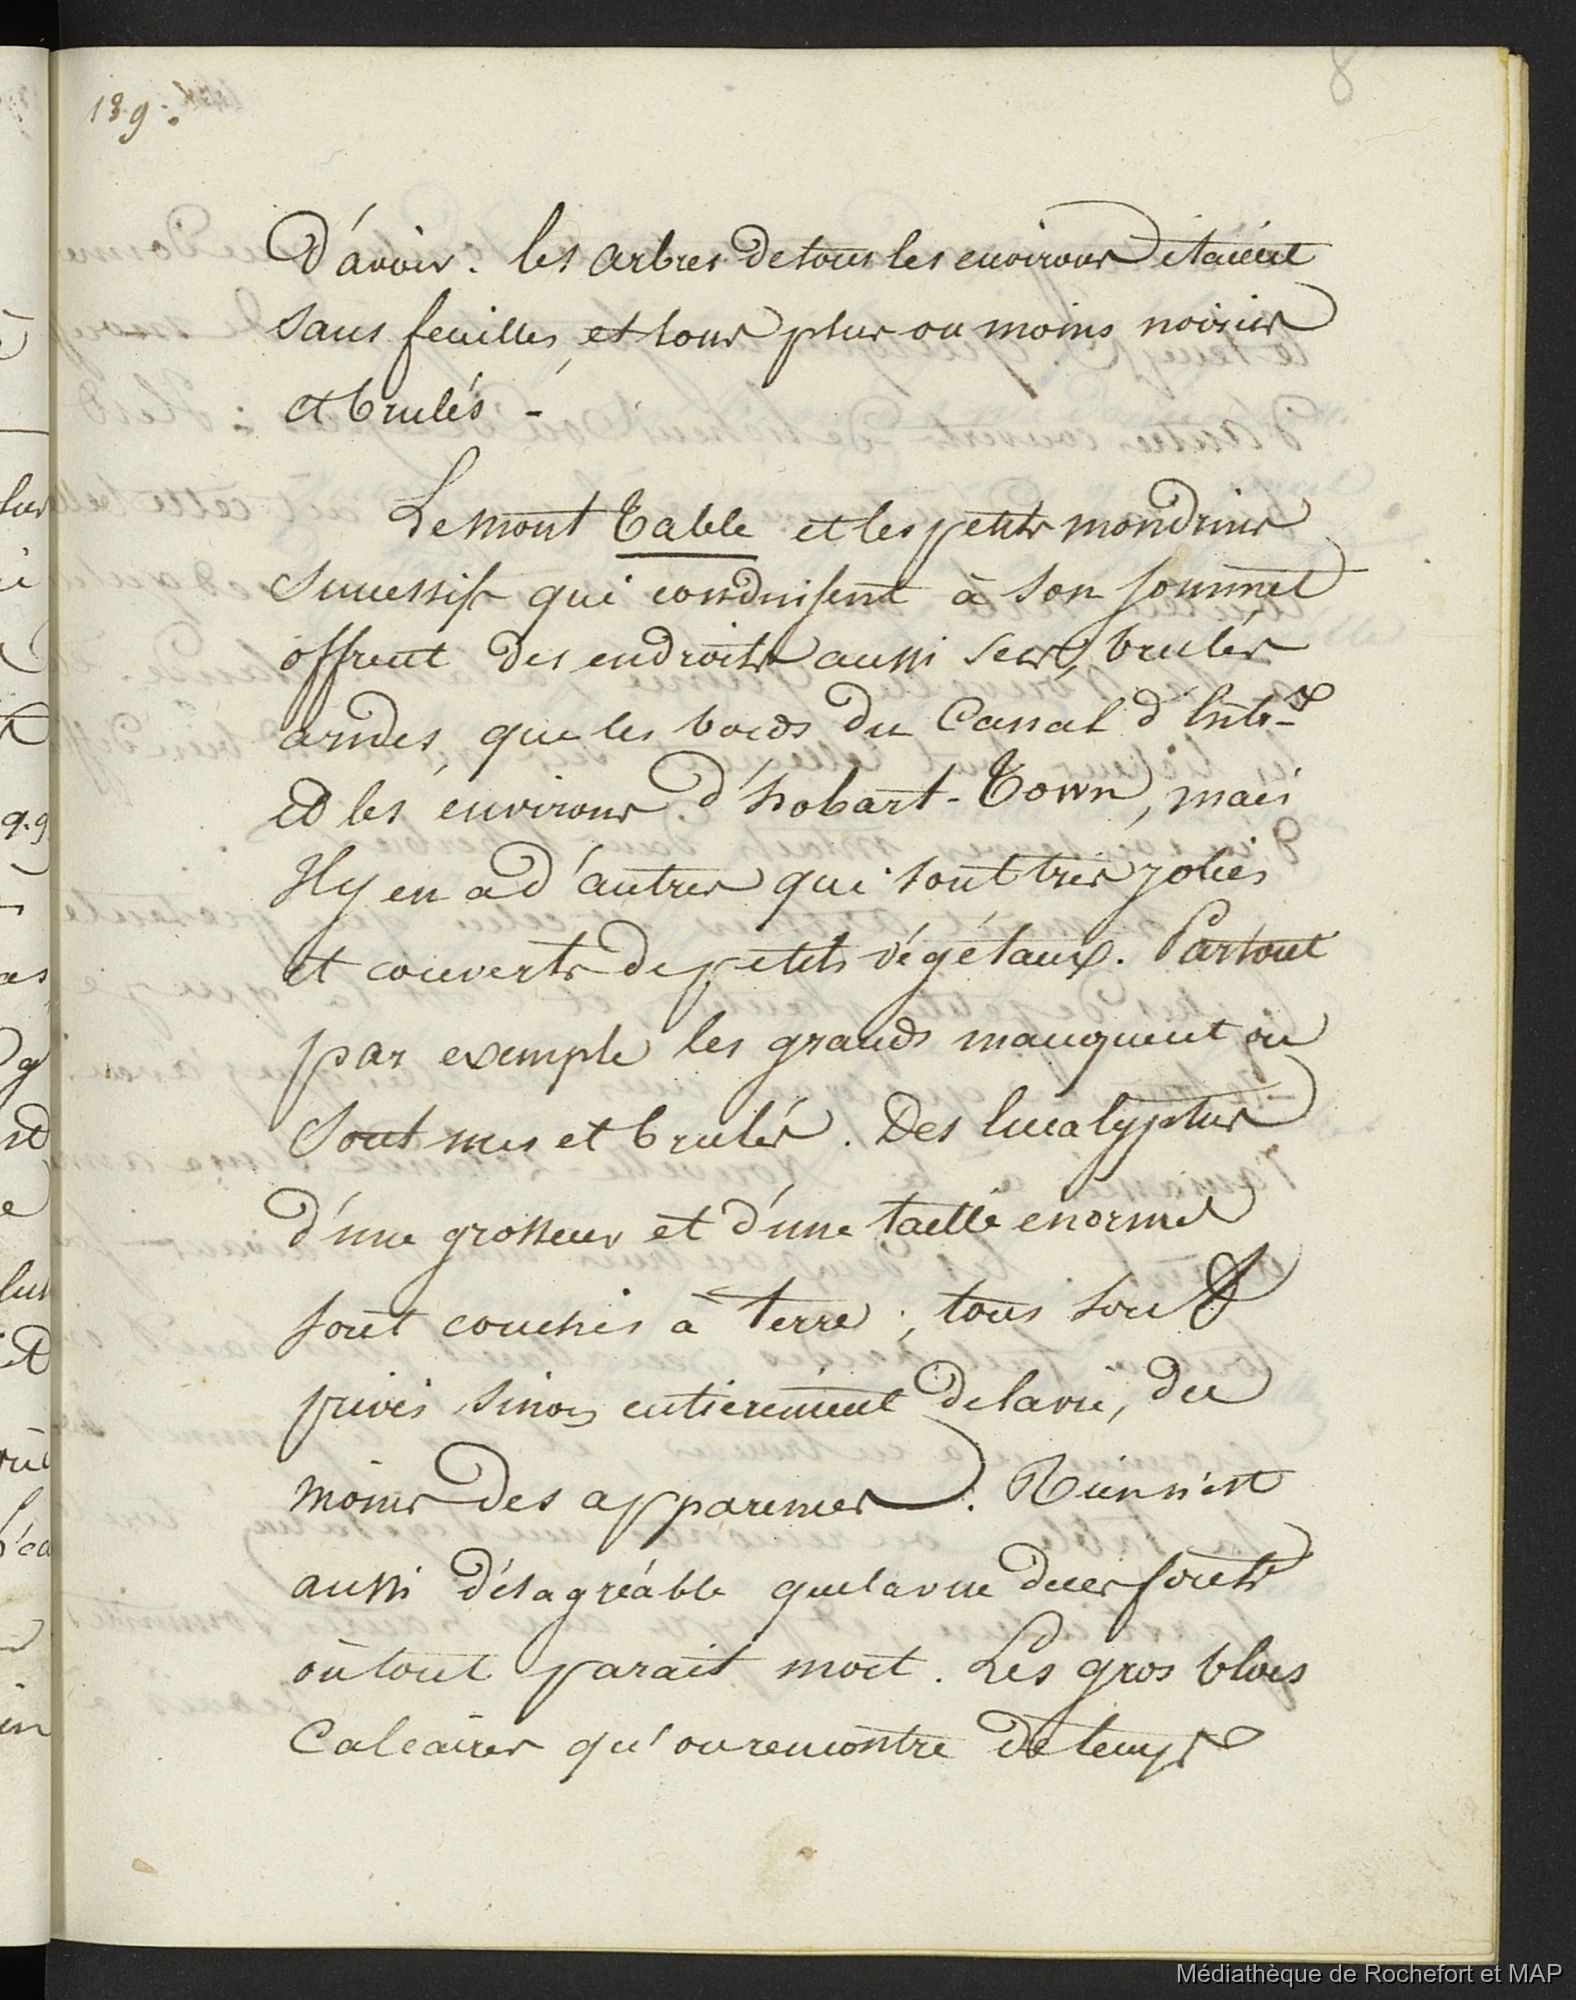 139.
8
D'avoir. les arbres de tous les environs etaient
sans feuilles, et tous plus ou moins noircis
et brulés -
Le mont Table et les petits mondrins
successifs qui conduisent à son sommet
offrent des endroits aussi secs, brulés
arides, que les bords du Canal d'Entr.x
et les environs d'hobart-Town, mais
Il y en a d'autres qui sont tres jolies
et couverts de petits végétaux. Partout
par exemple les grands manquent ou
Sont nus et brulés. Des Eucalyptus
d'une grosseur et d'une taille enormes
sont couchés à terre; tous sont
privés sinon entierement de la vie, du
moins des apparences. Rien n'est
aussi désagréable que la vue de ces forêts
où tout parait mort. Les gros blocs
Calcaires qu'on rencontre de temps
Médiathèque de Rochefort et MAP